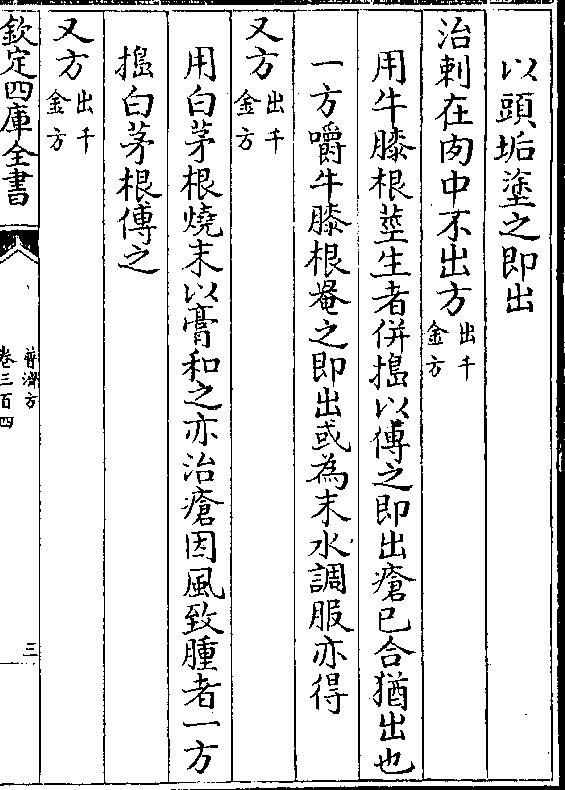 以頭垢塗之即出
治刺在肉中不出方出千金方
用牛膝根莖生者併搗以傅之即出瘡已合猶出也
一方嚼牛膝根罨之即出或為末水調服亦得
又方出千金方
用白茅根燒末以膏和之亦治瘡因風致腫者一方
搗白茅根傅之
又方出千金方
欽定四庫全書
普濟方
卷三百四
三